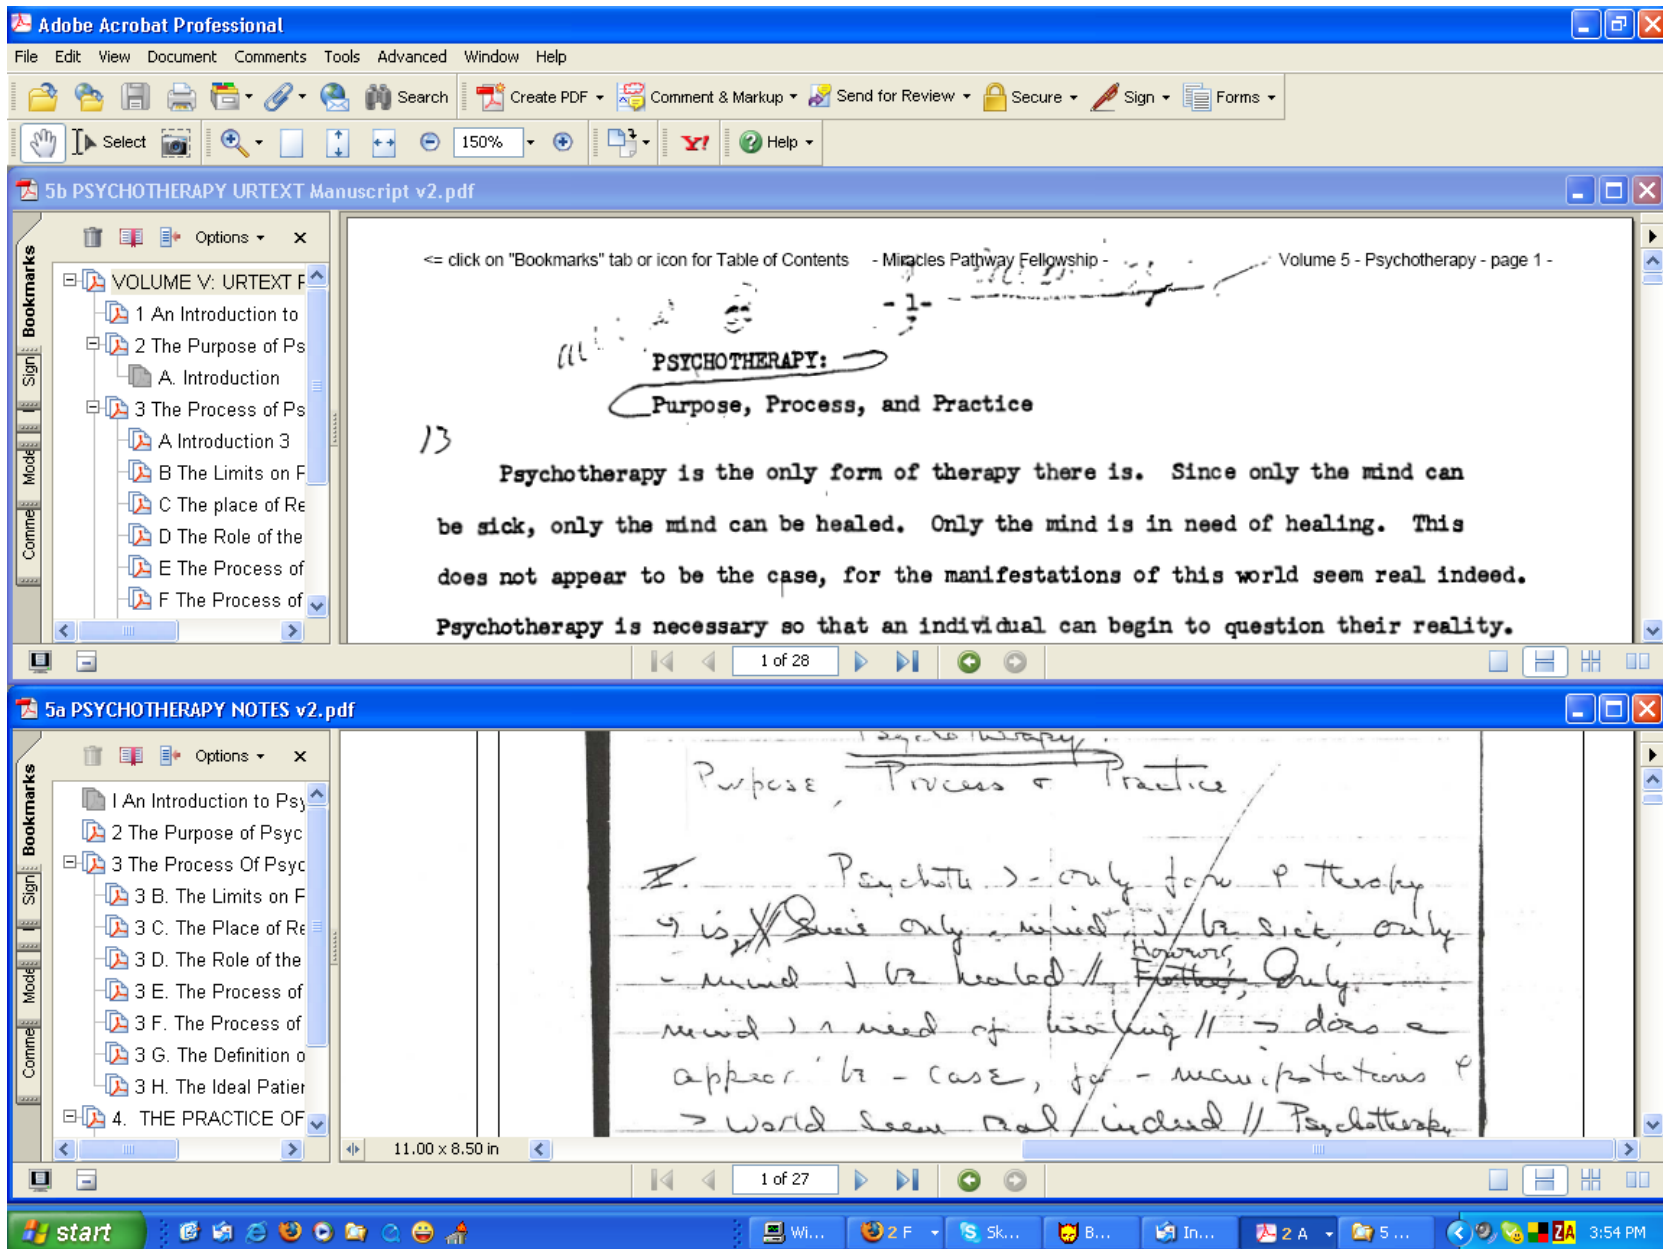 Adobe Acrobat Professional
File Edit View Document Comments Tools Advanced Window Help
Search Create PDF Comment & Markup Send for Review Secure Sign Forms
Select 150% Y! Help
5b PSYCHOTHERAPY URTEXT Manuscript v2.pdf
Bookmarks
Sign
Mode
Comme
Options
VOLUME V: URTEXT F
1 An Introduction to
2 The Purpose of Ps
A. Introduction
3 The Process of Ps
A Introduction 3
B The Limits on F
C The place of Re
D The Role of the
E The Process of
F The Process of
<= click on "Bookmarks" tab or icon for Table of Contents - Miracles Pathway Fellowship - Volume 5 - Psychotherapy - page 1 -
- 1 -
PSYCHOTHERAPY:
Purpose, Process, and Practice
13
Psychotherapy is the only form of therapy there is. Since only the mind can
be sick, only the mind can be healed. Only the mind is in need of healing. This
does not appear to be the case, for the manifestations of this world seem real indeed.
Psychotherapy is necessary so that an individual can begin to question their reality.
1 of 28
5a PSYCHOTHERAPY NOTES v2.pdf
Bookmarks
Sign
Mode
Comme
Options
I An Introduction to Psy
2 The Purpose of Psyc
3 The Process Of Psyc
3 B. The Limits on F
3 C. The Place of Re
3 D. The Role of the
3 E. The Process of
3 F. The Process of
3 G. The Definition o
3 H. The Ideal Patier
4. THE PRACTICE OF
Psychotherapy
Purpose, Process & Practice
I. Psychoth only form therapy
is // Since only mind be sick, only
However,
mind be healed // Further, Only
mind need of healing // does
appear case, for - manifestations
world seem real indeed // Psychotherapy
11.00 x 8.50 in
1 of 27
start Wi... 2 F Sk... B... In... 2 A 5 ... ZA 3:54 PM